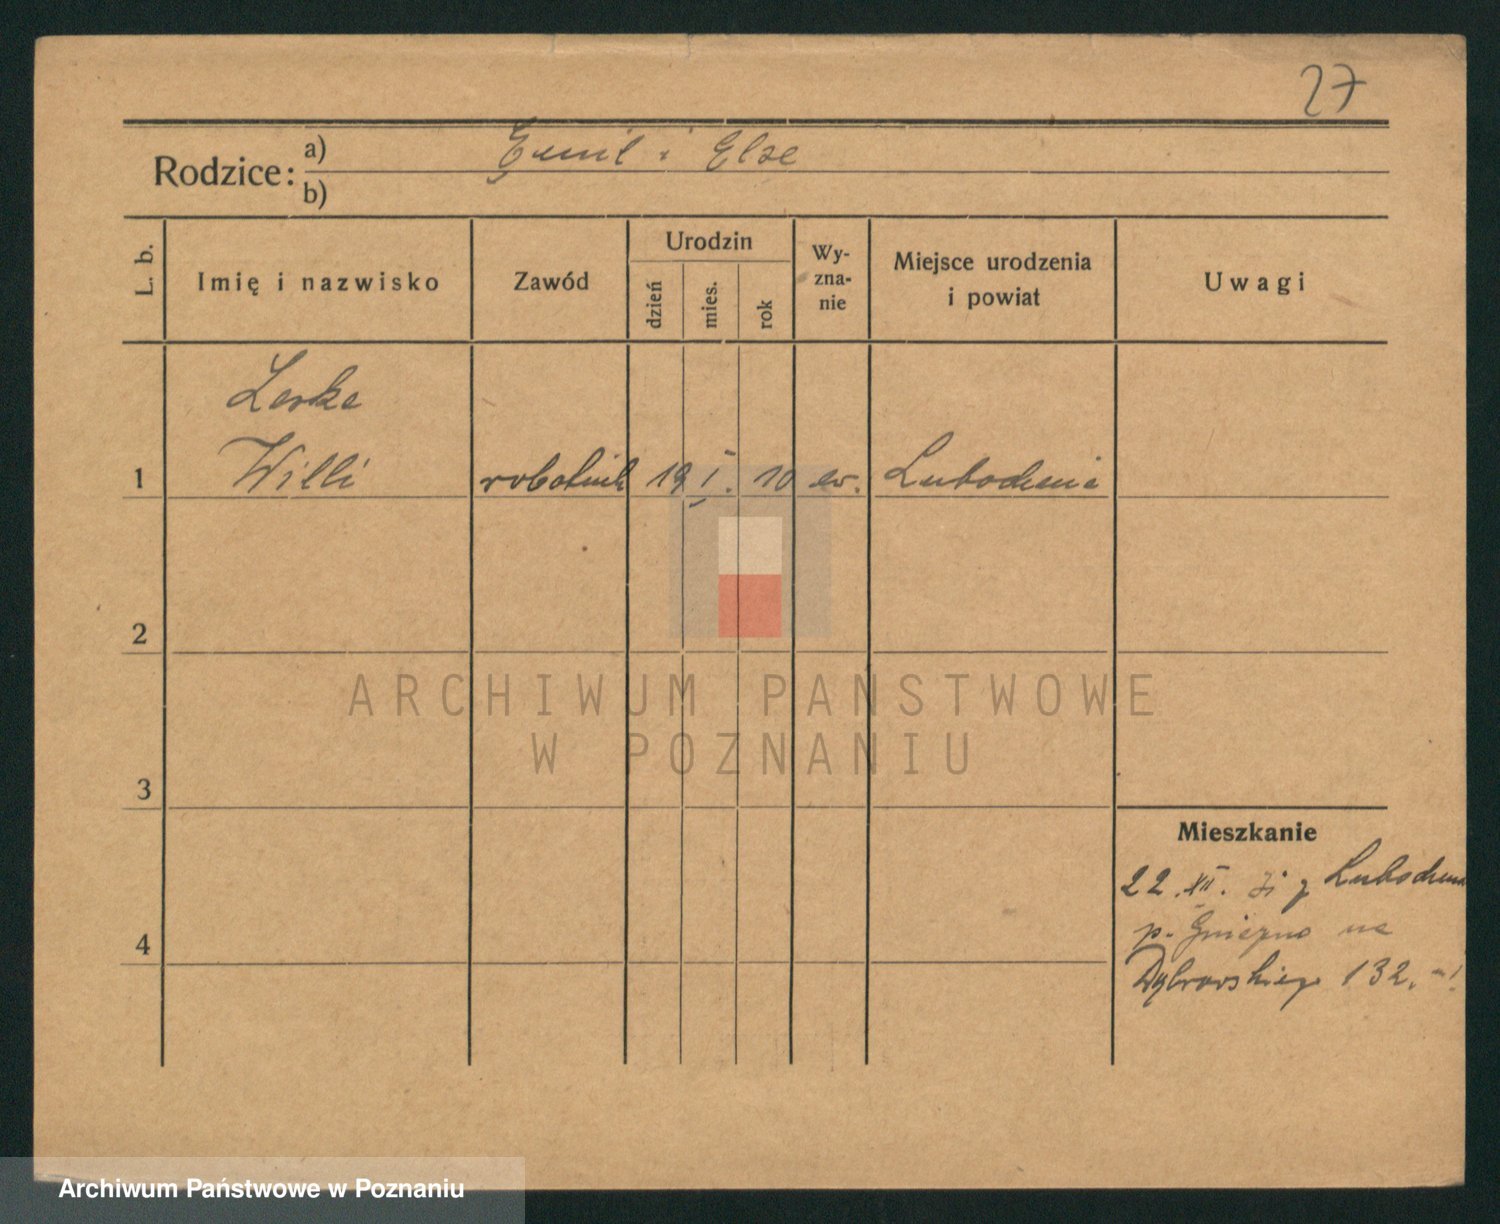 27
Rodzice: a) Emil i Else
b)
L. b.
Imię i nazwisko
Zawód
Urodzin
dzień
mies.
rok
Wy-
zna-
nie
Miejsce urodzenia
i powiat
Uwagi
Lerke
1 Willi robotnik 19 I. 10 ew. Lubochnia
2
3
4
Mieszkanie
22. XII. z Lubochnia
p. Gniezno na
132.
ARCHIWUM PAŃSTWOWE
W POZNANIU
Archiwum Państwowe w Poznaniu